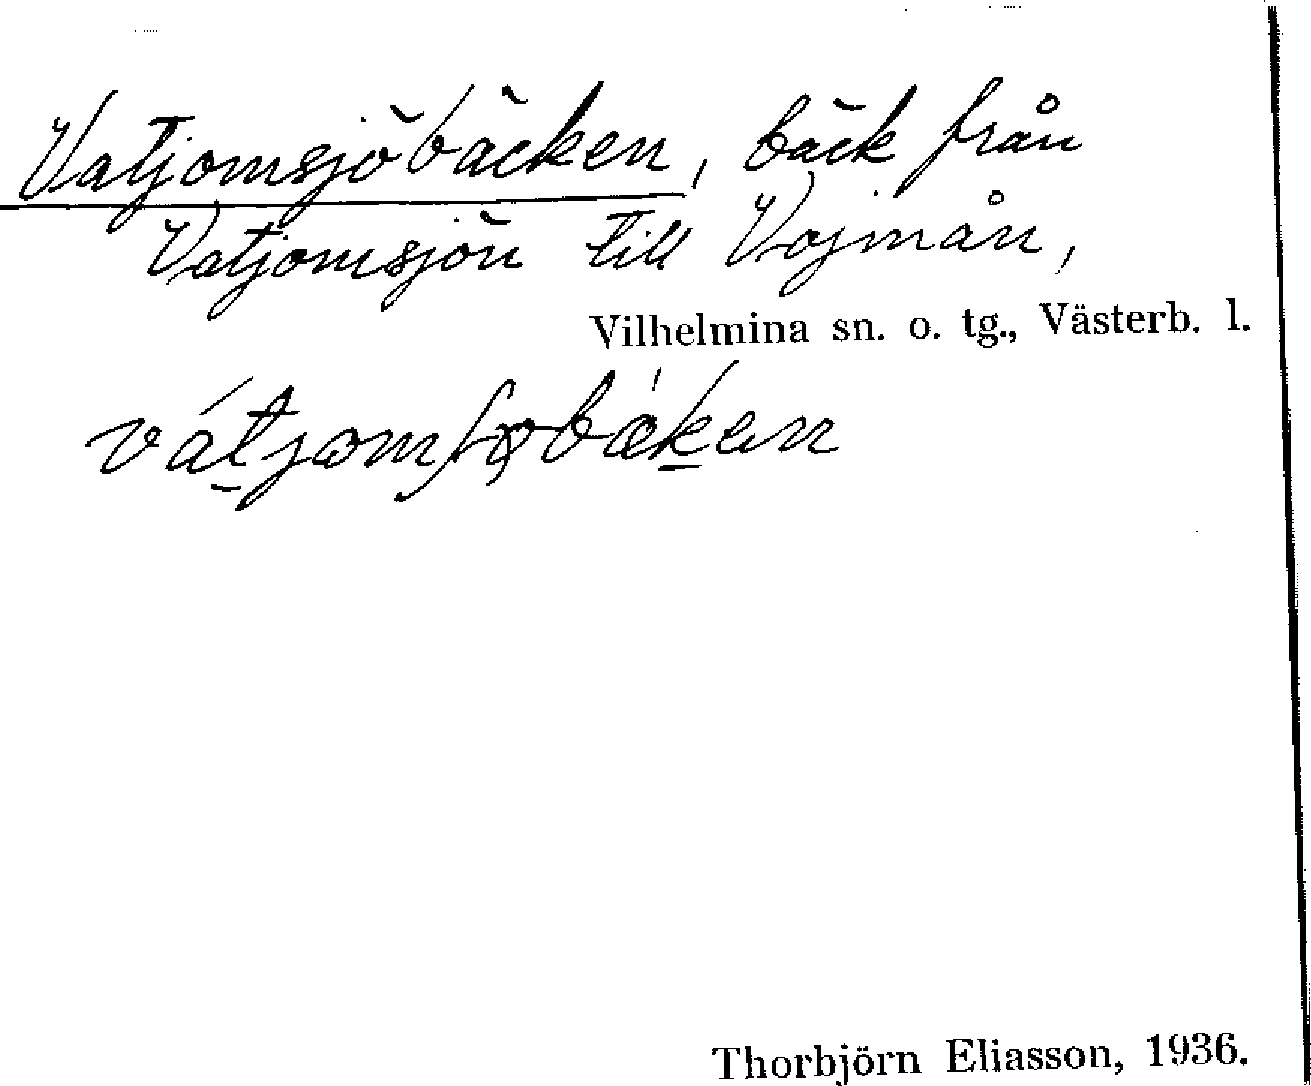 Vatjomsjöbäcken, bäck från
Vatjomsjön till Vojmån,
Vilhelmina sn. o. tg., Västerb. l.
vát̠jomʃøbǽk̠en
Thorbjörn Eliasson, 1936.